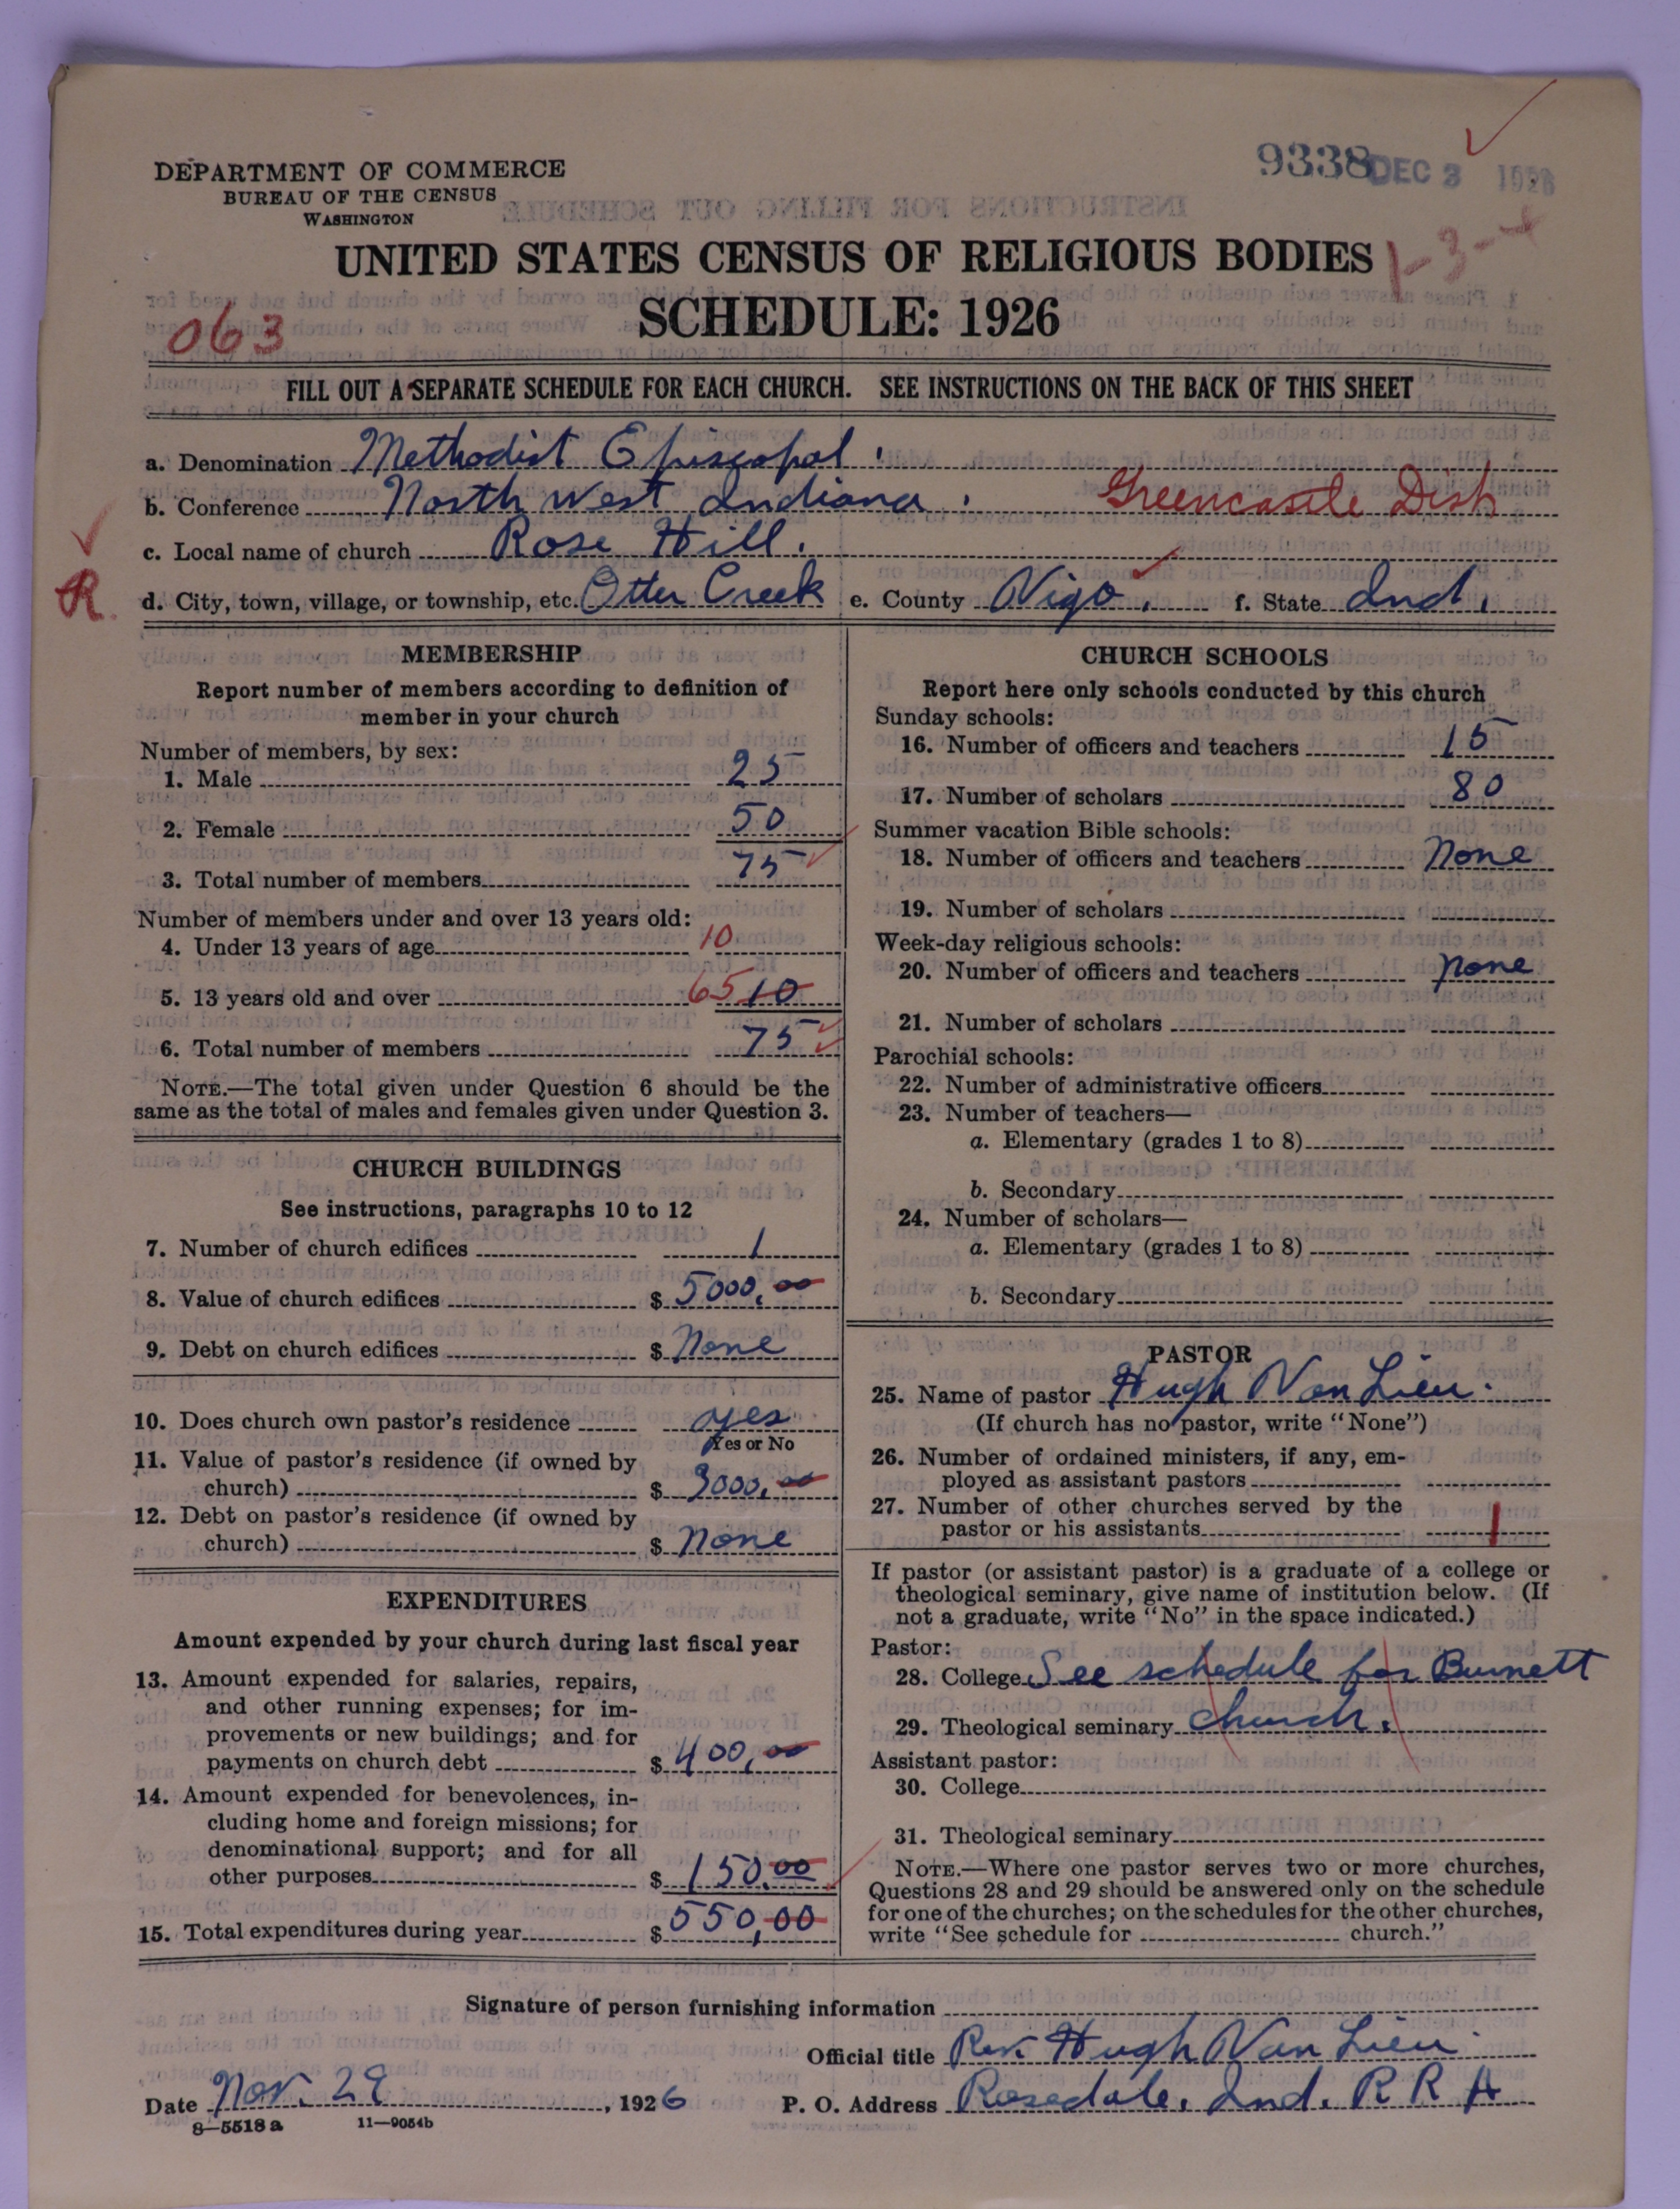 9338 DEC 3 1926
DEPARTMENT OF COMMERCE
BUREAU OF THE CENSUS
WASHINGTON
UNITED STATES CENSUS OF RELIGIOUS BODIES
1-3-4
SCHEDULE: 1926
063
FILL OUT A SEPARATE SCHEDULE FOR EACH CHURCH. SEE INSTRUCTIONS ON THE BACK OF THIS SHEET
a. Denomination Methodist Episcopal.
b. Conference North West Indiana. Greencastle Dist
c. Local name of church Rose Hill.
R d. City, town, village, or township, etc. Otter Creek e. County Vigo. f. State Ind.
MEMBERSHIP
Report number of members according to definition of
member in your church
Number of members, by sex:
1. Male 25
2. Female 50
3. Total number of members 75
Number of members under and over 13 years old:
4. Under 13 years of age 10
5. 13 years old and over 65 10
6. Total number of members 75
NOTE.—The total given under Question 6 should be the
same as the total of males and females given under Question 3.
CHURCH BUILDINGS
See instructions, paragraphs 10 to 12
7. Number of church edifices 1
8. Value of church edifices $ 5000.00
9. Debt on church edifices $ None
10. Does church own pastor's residence yes
Yes or No
11. Value of pastor's residence (if owned by
church) $ 3000.00
12. Debt on pastor's residence (if owned by
church) $ None
EXPENDITURES
Amount expended by your church during last fiscal year
13. Amount expended for salaries, repairs,
and other running expenses; for im-
provements or new buildings; and for
payments on church debt $ 400.00
14. Amount expended for benevolences, in-
cluding home and foreign missions; for
denominational support; and for all
other purposes $ 150.00
15. Total expenditures during year $ 550.00
CHURCH SCHOOLS
Report here only schools conducted by this church
Sunday schools:
16. Number of officers and teachers 15
17. Number of scholars 80
Summer vacation Bible schools:
18. Number of officers and teachers None
19. Number of scholars
Week-day religious schools:
20. Number of officers and teachers None
21. Number of scholars
Parochial schools:
22. Number of administrative officers
23. Number of teachers—
a. Elementary (grades 1 to 8)
b. Secondary
24. Number of scholars—
a. Elementary (grades 1 to 8)
b. Secondary
PASTOR
25. Name of pastor Hugh Van Lieu.
(If church has no pastor, write "None")
26. Number of ordained ministers, if any, em-
ployed as assistant pastors
27. Number of other churches served by the
pastor or his assistants 1
If pastor (or assistant pastor) is a graduate of a college or
theological seminary, give name of institution below. (If
not a graduate, write "No" in the space indicated.)
Pastor:
28. College See schedule for Burnett
29. Theological seminary church.
Assistant pastor:
30. College
31. Theological seminary
NOTE.—Where one pastor serves two or more churches,
Questions 28 and 29 should be answered only on the schedule
for one of the churches; on the schedules for the other churches,
write "See schedule for ---------- church."
Signature of person furnishing information
Official title Rev. Hugh Van Lieu.
Date Nov. 29, 1926 P. O. Address Rosedale, Ind. R R A
8—5518 a 11—9054b